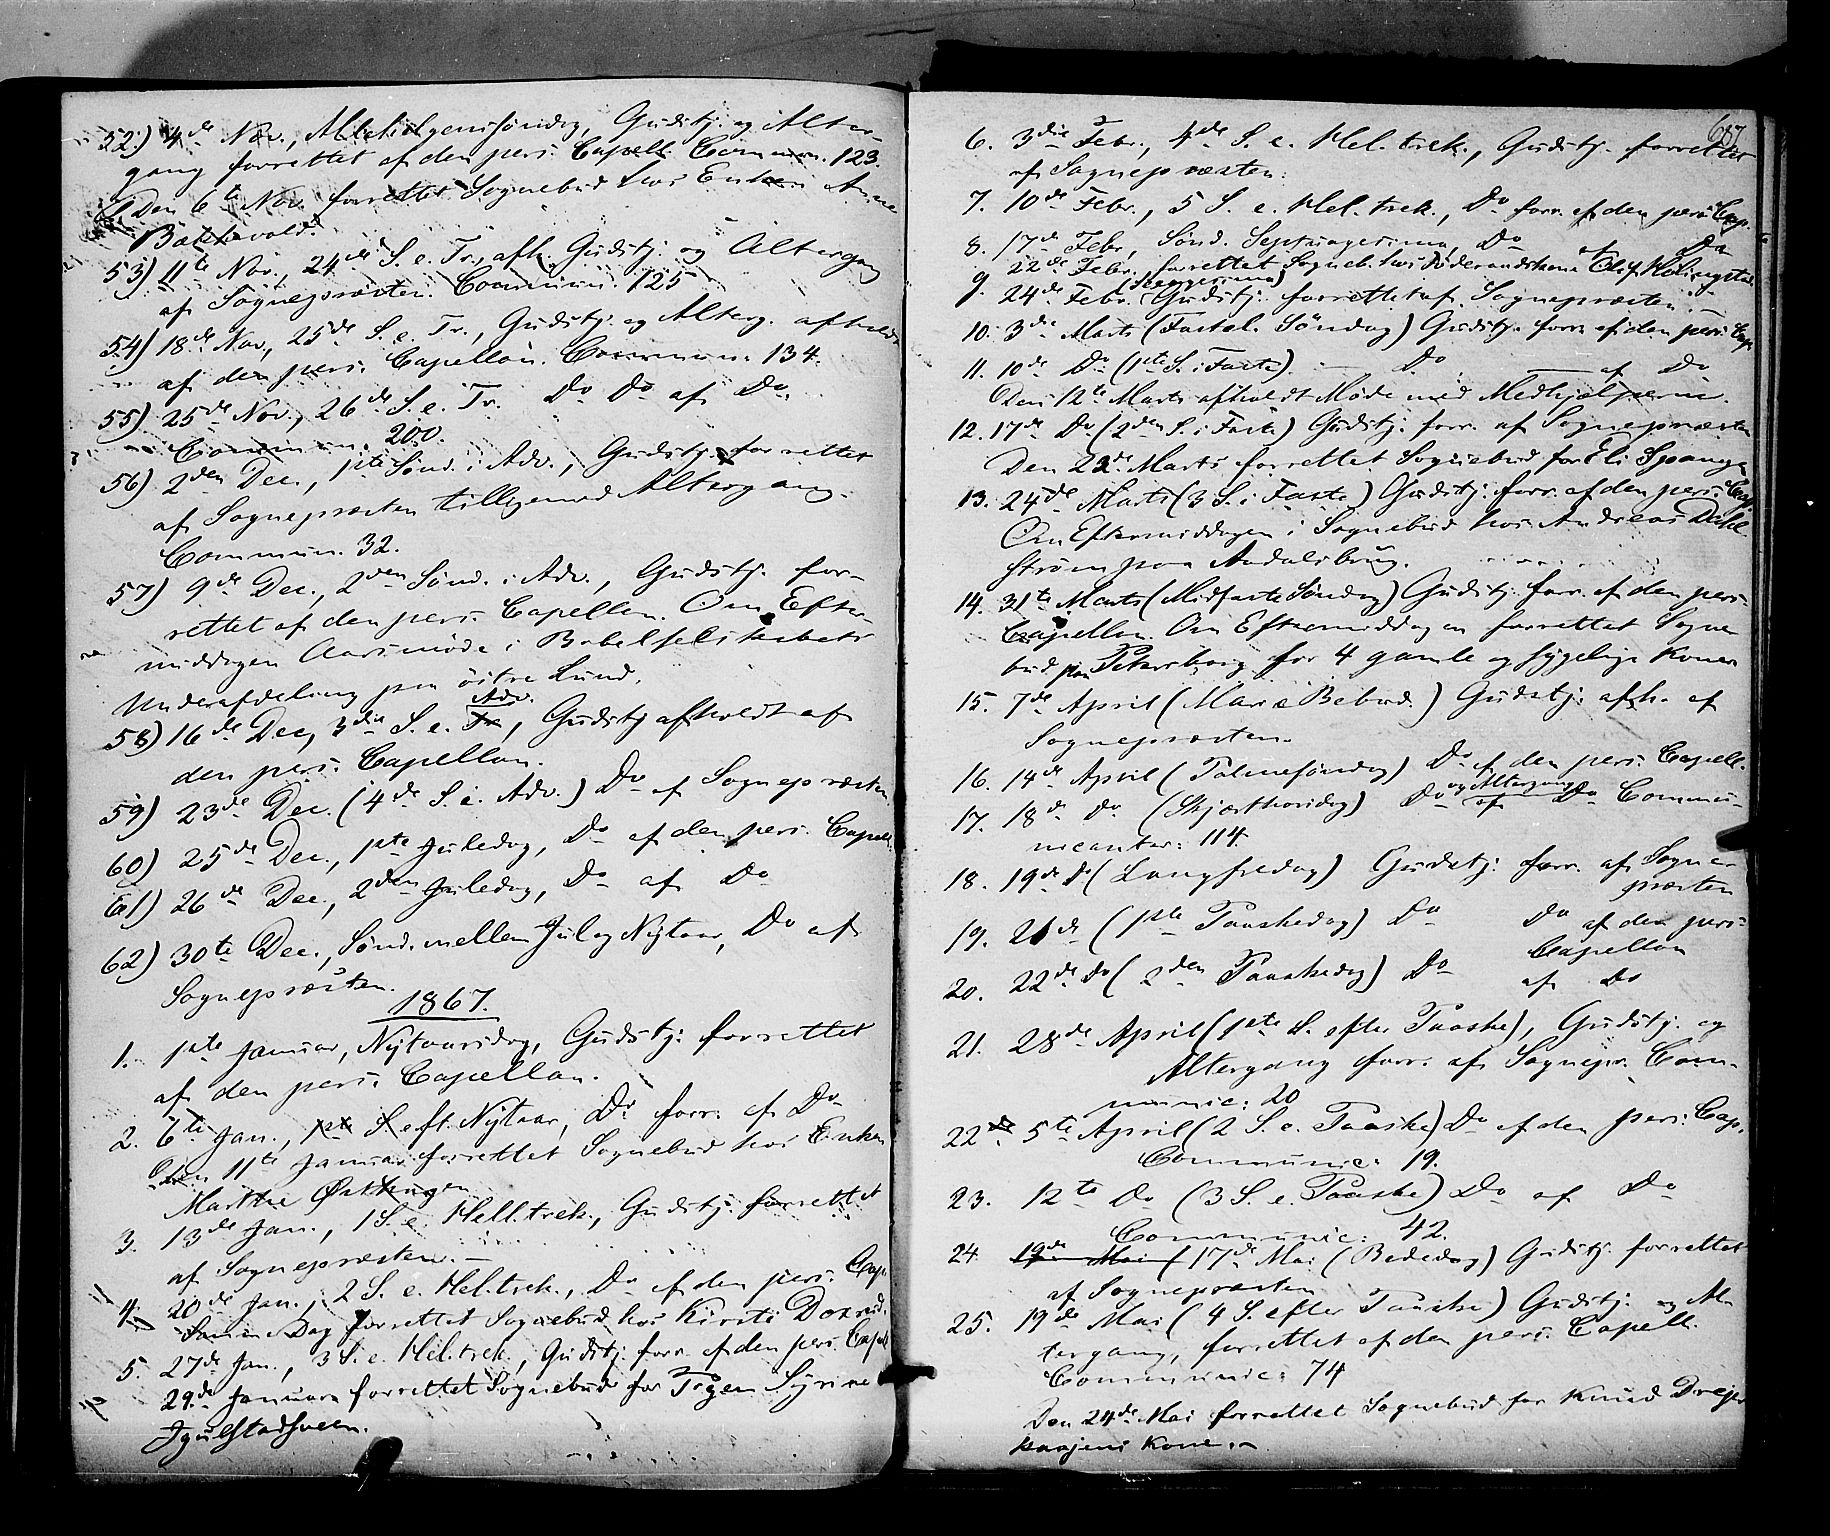 52.) 4de Nov., Allehelgenssøndag, Gudstj. og Alter-
gang forrettet af den pers. Capell. Commun. 123.
Den 6te Nov. forrettet Sognebud hos Enken Anne
Bækkevold.
53) 11te Nov., 24de S. e. Tr., afh. Gudstj. og Altergang
af Sognepræsten. Commun. 125
54) 18de Nov., 25de S. e. Tr., Gudstj. og Alterg. afholdt
af den pers. Capellan. Commun. 134.
55) 25de Nov., 26de S. e. Tr. Do Do af Do.
Commun. 200.
56) 2den Dec., 1ste Sønd. i Adv., Gudstj. forrettet
af Sognepræsten tilligemed Altergang.
Commun. 32.
57) 9de Dec., 2den Sønd. i Adv., Gudstj. for-
rettet af den pers. Capellan. Om Efter-
middagen Aarsmøde i Bibelselskabets
Underafdeling paa östre Lund.
58) 16de Dec., 3die S. e. Tr Adv., Gudstj. afholdt af
den pers. Capellan.
59) 23de Dec. (4de S. i. Adv.) Do af Sognepræsten
60) 25de Dec., 1ste Juledag, Do af den pers. Capell.
61) 26de Dec., 2den Juledag, Do af Do
62) 30te Dec., Sønd. mellem Jul og Nytaar, Do af
Sognepræsten.
1867.
1. 1ste Januar, Nytaarsdag, Gudstj. forrettet
af den pers. Capellan.
2. 6te Jan., 1ste S. eft. Nytaar, Do forr. af Do
Den 11te Januar forrettet Sognebud hos Enken
Marthe
3. 13de Jan., 1 S. e. Hell. trek., Gudstj. forrettet
af Sognepræsten. —
4. 20de Jan., 2 S. e. Hel. trek., Do af den pers. Cap.
Samme Dag forrettet Sognebud hos Kirsti
5. 27de Jan., 3 S. e. Hel. trek., Gudstj. forr. af den pers. Capell
29de Januar forrettet Sognebud for Pigen
687
6. 3die Febr., 4de S. e. Hel. trek., Gudstj. forrettet
af Sognepræsten.
7. 10de Febr., 5 S. e. Hel. trek., Do forr. af den pers. Cap.
8. 17de Febr., Sønd. Septuagesima, Do af Do
22de Febr. forrettet Sogneb. hos
9. 24de Febr. (Sexagesima) Gudstj. forrettet af Sognepræsten
10. 3die Marts (Fastel. Söndag) Gudstj. forr. af den pers. Cap.
11. 10de Do (1ste S. i Faste). — Do — af Do
Den 12te Marts afholdt Møde med Medhjelperne.
12. 17de Do (2den S. i Faste) Gudstj. forr. af Sognepræsten
Den 22de Marts forrettet Sognebud for Eli
13. 24de Marts (3 S. i Faste) Gudstj. forr. af den pers. Cap.
Om Eftermiddagen i Sognebud hos Andreas Dahl
strøm paa Aadalsbrug.
14. 31te Marts (Midfaste Søndag) Gudstj. forr. af den pers.
Capellan. Om Eftermiddagen forrettet Sogne
bud paa for 4 gamle og sygelige Koner
15. 7de April (Mariæ Bebud.) Gudstj. afh. af
Sognepræsten.
16. 14de April (Palmesøndag) Do af den pers. Capell.
17. 18de Do (Skjærthorsdag) Do og Altergang af Do Commu-
nicanter: 114.
18. 19de Do (Langfredag) Gudstj. forr. af Sogne-
præsten
19. 21de (1ste Paaskedag) Do Do af den pers.
Capellan
20. 22de Do (2den Paaskedag) Do af Do
21. 28de April (1ste S. efter Paaske), Gudstj. og
Altergang forr. af Sognepr. Com-
munic: 20
22 5te April (2 S. e. Paaske) Do af den pers. Cap.
Communic: 19.
23. 12te Do (3 S. e. Paaske) Do af Do
Communic: 42.
24. 19de Mai ( 17de Mai (Bededag) Gudstj. forrettet
af Sognepræsten
25. 19de Mai (4 S. efter Paaske) Gudstj. og Al-
tergang, forrettet af den pers. Capell.
Communic: 74
Den 24de Mai forrettet Sognebud for Knud Drejer
Kone.